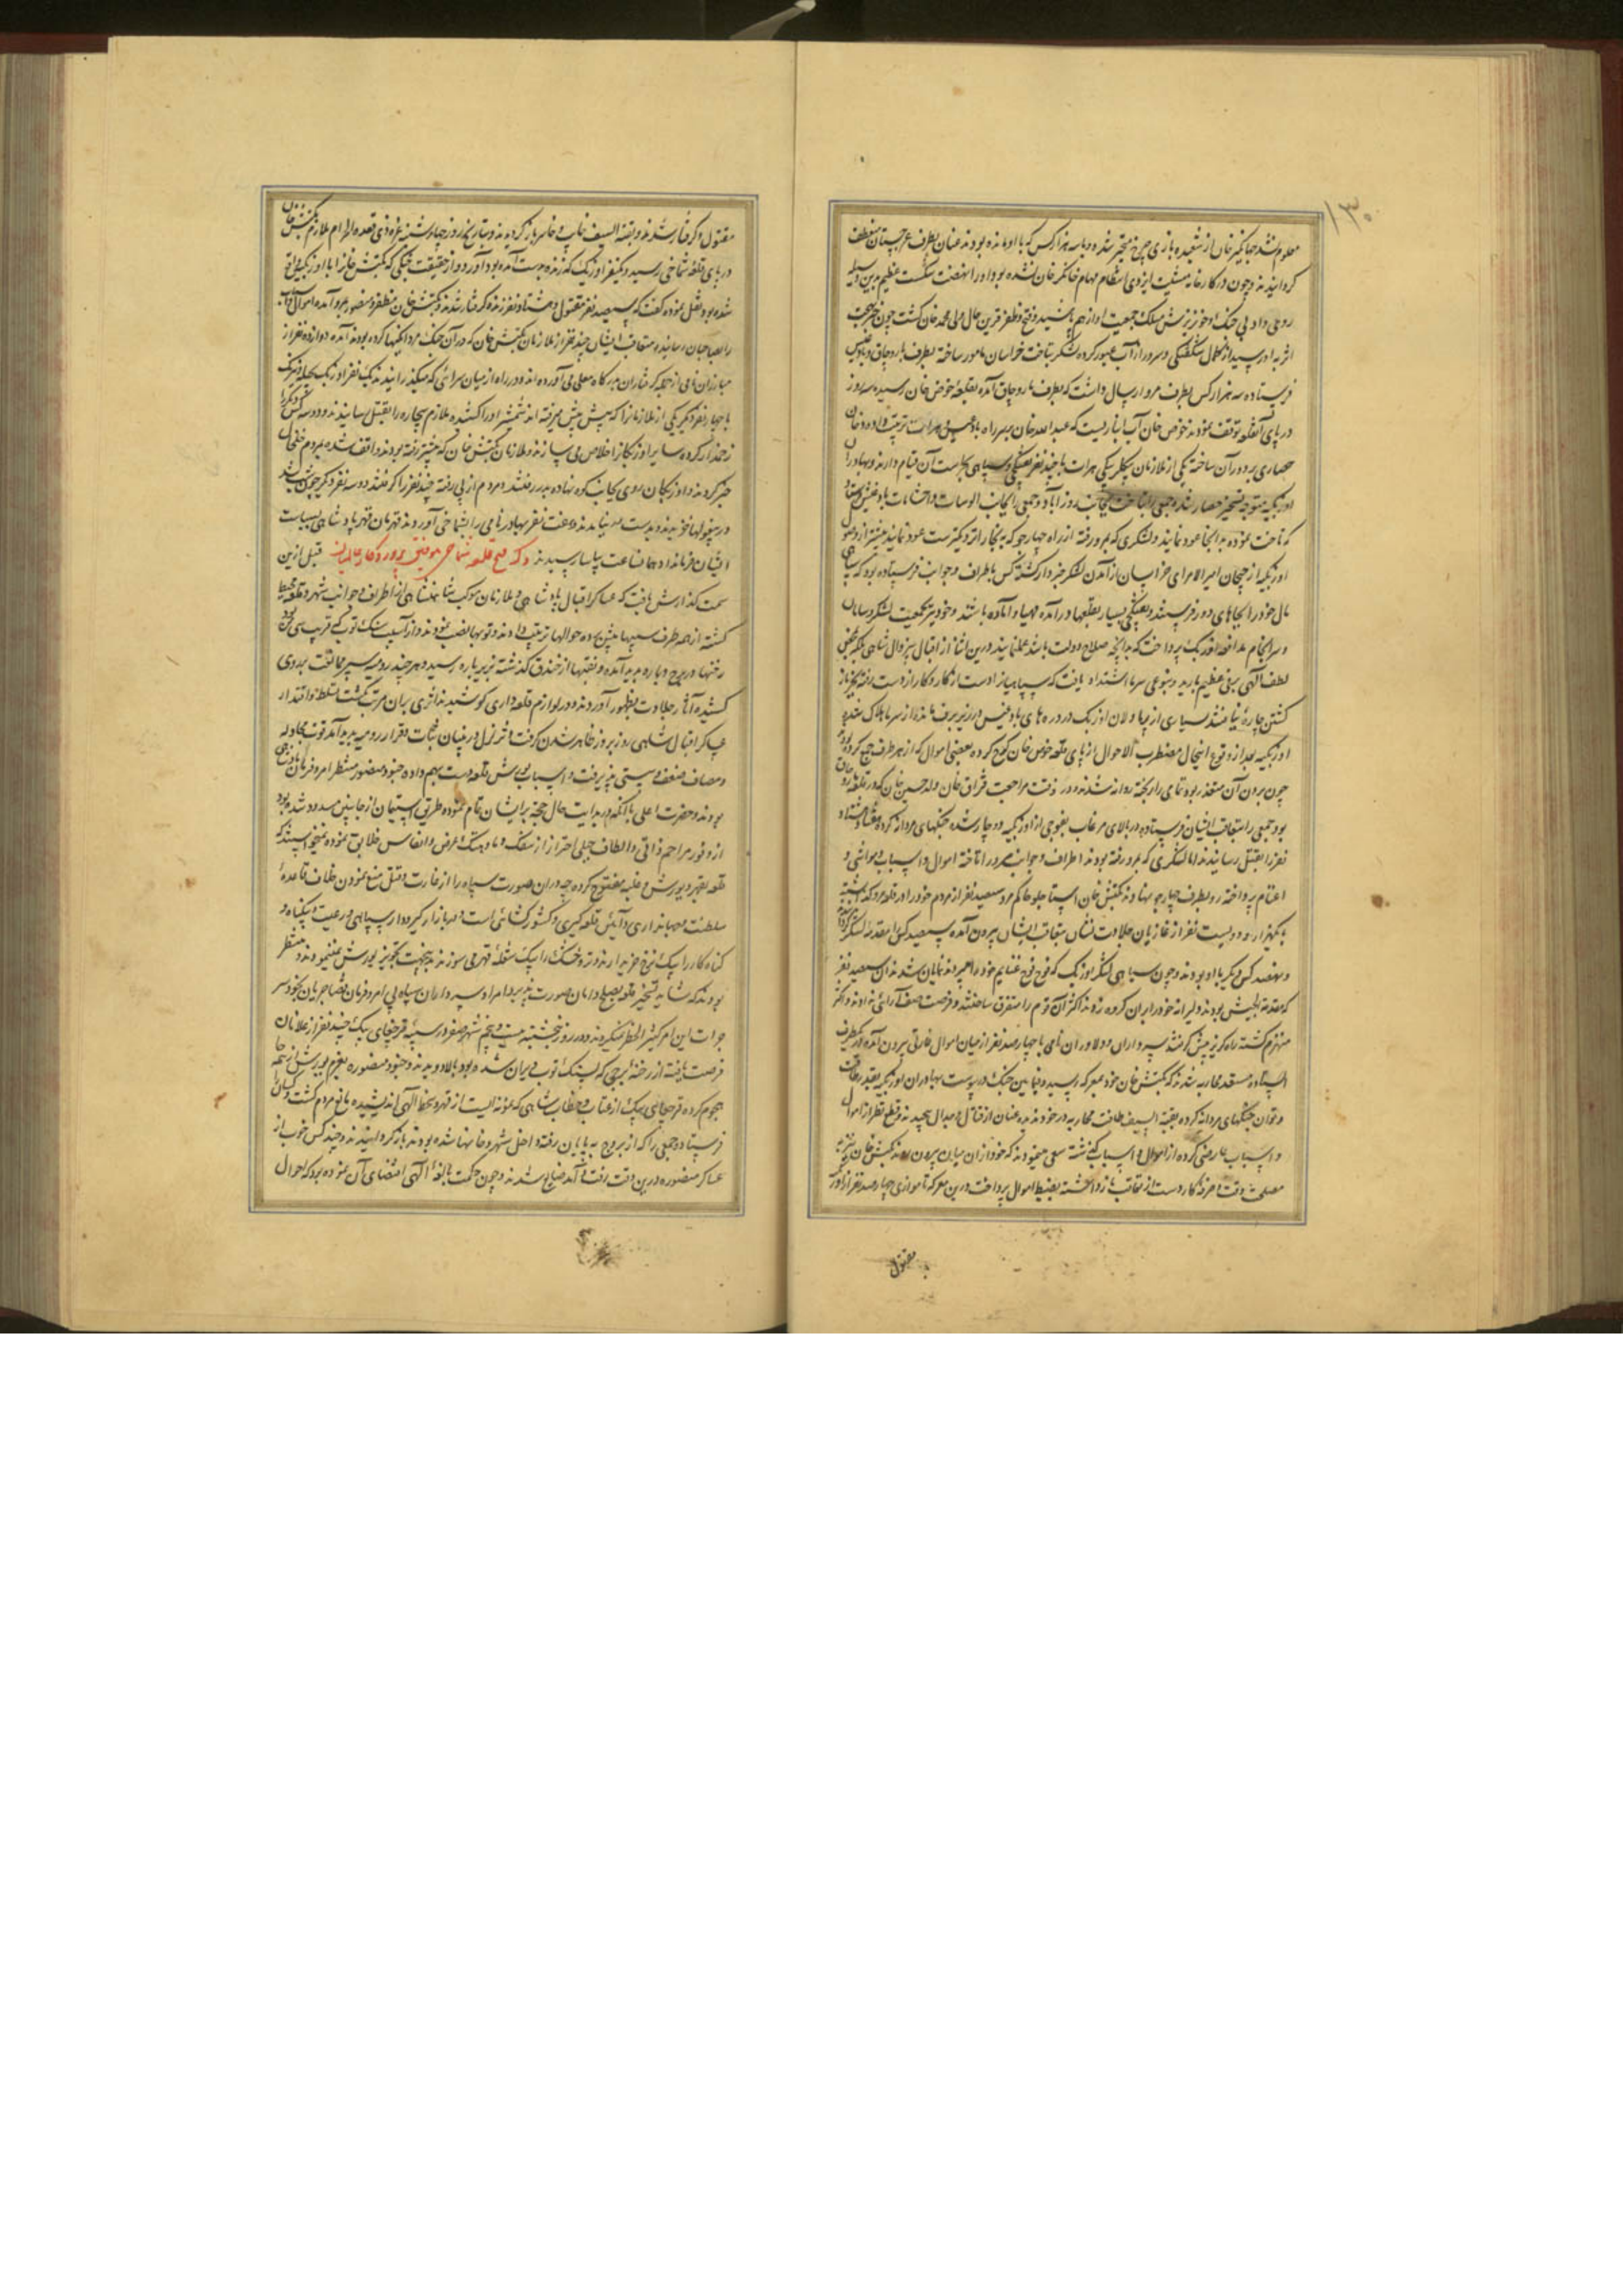 ۱۳۰
معلوم شد جهانگیر خان از شعبده بازی چرخ متحیر شده و با سه هزار کس که با او مانده بودند عنان بطرف غرجستان منعطف
گردانیدند و چون در کارخانه مشیت ایزدی انتظام مهام جهانگیر خان نشده بود او را اینچنین شکست عظیم بدین وسیله
روی داد بی جنک و خونریزش سلک جمعیت او از هم پاشید و فتح و ظفر قرین حال ولی محمد خان کشت چون خبر بهجت
اثر به او رسید از کمال شکفتکی و سرور از آب عبور کرده لشکر بتاخت خراسان مامور ساخته بطرف ماروچاق و بادغیس
فرستاده سه هزار کس بطرف مرو ارسال داشت که بطرف ماروچاق آمده بقلعه حوض خان رسیده سه روز
در پای آن قلعه توقف نمودند حوض خان آب انباریست که عبدالله خان بر سر راه بادغیس هرات ترتیب داده و خان
حصاری بر دور آن ساخته یکی از ملازمان بیکلربیکی هرات با چند نفر تفنکچی و سپاهی بحراست آن قیام دارند و بهادران
اوزبکیه متوجه تسخیر حصار شده جمعی را بتاخت بجانب روزآباد و جمعی را بجانب الوسات و احشامات بادغیس
که تاخت نموده به آنجا عود نمایند و لشکری که بمرو رفته از راه چهارجو که به بخارا نزدیکترست عود نمایند پیشتر از وصول
اوزبکیه از جیجان امیر الامرای خراسان از آمدن لشکر خبردار کشته کس باطراف و جوانب فرستاده بود که
مال خود را بجاهای دور فرستند و تفنکچی بسیار بقلعها درآمده مهیا و آماده باشند و خود نیز بجمعیت لشکر و سامان
و سرانجام مدافعه اوزبک پرداخت که بدانچه صلاح دولت باشد عمل نمایند درین اثنا از اقبال بیزوال شاهی
لطف الهی برفی عظیم بارید و بنوعی سرما اشتداد یافت که سپاهیان را دست از کار و کار از دست رفته بجز باز
کشتن چاره نیافتند بسیاری از پیادکان اوزبک در دره های بادغیس در زیر برف مانده از سرما هلاک شدند
اوزبکیه بعد از وقوع اینحال مضطرب الاحوال از پای قلعه حوض خان کوچ کرده بعضی اموال که از هر طرف جمع کرده بودند
چون بردن آن متعذر بود تمامی را ریخته روانه شدند و در وقت مراجعت قزاق خان ولد حسین خان که در قلعه
بود جمعی را متعاقب ایشان فرستاده در بالای مرغاب بفوجی از اوزبکیه دوچار شده جنکهای مردانه کرده هفتاد هشتاد
نفر را بقتل رسانیدند اما لشکری که بمرو رفته بودند اطراف و جوانب مرو را تاخته اموال و اسباب و مواشی و
اغنام پرداخته رو بطرف چهارجو نهادند بکتش خان استاجلو حاکم مرو سیصد نفر از مردم خود را در قلعه مرو کذاشته
با یکهزار و دویست نفر از غازیان جلادت نشان متعاقب ایشان بیرون آمده سیصد کس را مقدمه لشکر
و نهصد کس دیکر با او بودند و چون سیاهی لشکر اوزبک که فوج فوج غنایم خود را میبردند نمایان شد آن سیصد نفر
که مقدمة الجیش بودند دلیرانه خود را بر آن کروه زدند اکثر آن قوم را متفرق ساختند و فرصت صف آرائی ندادند و اکثر
منهزم کشته راه کریز پیش کرفتند سرداران و دلاوران نامی با چهارصد نفر از میان اموال غارتی بیرون آمده از یکطرف
ایستاده مستعد محاربه شدند که بکتش خان خود بمعرکه رسید و فیمابین جنک در پیوست بهادران اوزبکیه بقدر طاقت
و توان جنکهای مردانه کرده بقیة السیف طاقت محاربه در خود ندیده عنان از قتال و جدال پیچیدند و قطع نظر از اموال
و اسباب عارضی کرده از اموال و اسباب کذشته سعی مینمودند که خود از آن میان بیرون روند بکتش خان
مصلحت وقت و صرفه کار دست از تعاقب بازداشته بضبط اموال پرداخت درین معرکه تا موازی چهارصد نفر از اوزبک
مقتول
مقتول و کرفتار شدند و بقیة السیف خائب و خاسر باز کردیدند و بتاریخ روز چهارشنبه غره ذی قعده الحرام ملازم بکتش خان
در پای قلعه شماخی رسید و یکنفر اوزبک که زنده بدست آمده بود آورد و از حقیقت جنکی که بکتش خانرا با اوزبکیه واقع
شده بود نقل نموده کفت که سیصد نفر مقتول و هشتاد نفر زنده کرفتار شدند و بکتش خان مظفر و منصور بمرو آمده اموال و اسباب
را بصاحبان رسانیده متعاقب ایشان چند نفر از ملازمان بکتش خان که در آن جنک مردانکیها کرده بودند آمده دوازده نفر از
مبارزان نامی از جمله کرفتاران بدرکاه معلی می آورده اند و در راه از میان سرائی که میکذرانیدند یک نفر اوزبک
با چهار نفر دیکر یکی از ملازمانرا که پیش پیش میرفته اند شمشیر او را کشیده ملازم بیچاره را بقتل رسانیدند و دو سه کس دیکر را
زخمدار کرده سایر اوزبکانرا خلاص می سازند و ملازمان بکتش خان که پیشتر رفته بودند واقف شده بمردم
خبر کردند و اوزبکان روی بجانب کوه نهاده بدر رفتند و مردم از پی رفته چند نفر را کرفتند دو سه نفر دیکر
در بیغولها خزیدند و بدست نیامدند و هفت نفر بهادر نامی را بشماخی آوردند قهرمان قهر پادشاهی بسیاست
ایشان فرمان داد همان ساعت بیاسا رسیدند ذکر فتح قلعه شماخی بتوفیق پروردکار عالمیان قبل ازین
سمت کذارش یافت که عساکر اقبال پادشاهی و ملازمان موکب شاهنشاهی از اطراف و جوانب شهر و قلعه
کشته از همه طرف سیبها پیش برده حوالها ترتیب دادند و توپها نصب نمودند و از آسیب سنک توپ که قریب سی من بود
رخنها در برج و باره پدید آمده و نقبها از خندق کذشته بزیر باره رسید و هر چند رومیه سپر ممانعت بر روی
کشیده آثار جلادت بظهور آوردند و در لوازم قلعه داری کوشیدند اثری بر آن مترتب نکشت تسلط و اقتدار
عساکر اقبال شاهی روز بروز ظاهر شدن کرفت و تزلزل در بنیان ثبات و قرار رومیه پدید آمد قوت مجادله
و مصاف ضعف و سستی پذیرفت و اسباب یورش قلعه دست بهم داده جنود منصور منتظر امر و فرمان
بودند و حضرت اعلی با آنکه در بدایت حال حجت بر ایشان تمام نموده طریق استیمان از جانبین مسدود شده بود
از وفور مراحم ذاتی و الطاف جبلی احتراز از سفک دماء و هتک عرض و انفاس خلایق نموده نمیخواستند که
قلعه بقهر و یورش و غلبه مفتوح کردد چه در آن صورت سپاه را از غارت و قتل منع نمودن خلاف قاعده
سلطنت و جهانداری و آیین قلعه کیری و کشور کشائی است و در بازار کیر و دار سپاهی و رعیت و بیکناه و
کناه کار را بیک نرخ خریدارند و تر و خشک را بیک شعله قهر می سوزند بدینجهت تجویز یورش نمیفرمودند و منتظر
بودند که شاید تسخیر قلعه بصلح و امان صورت پذیرد امرا و سرداران سپاه بی امر و فرمان قضا جریان بخود سر
جرات این امر کبیر الخطر نمیکردند و در روز پنجشنبه بیست و پنجم شهر صفر در سیبه قرچغای بیک چند نفر از غلامان
فرصت یافته از رخنه برجی که بسنک توپ ویران شده بود بالا دویدند و جنود منصوره بعزم یورش از جا
هجوم کرده قرچغای بیک از عتاب و خطاب شاهی که نمونه ایست از قهر و سخط الهی اندیشیده مانع مردم کشت و کسان
فرستاد و جمعی را که از بروج به پایان رفته داخل شهر و خانها شده بودند باز کردانیدند و چند کس خوب از
عساکر منصوره درین وقت رفت و آمد ضایع شدند و چون حکمت بالغه الهی اقتضای آن نموده بود که احوال